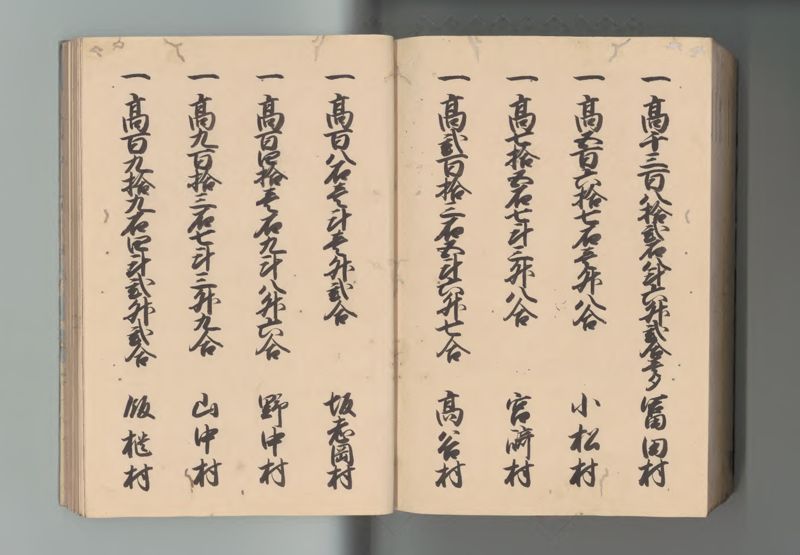 一 高千三百八拾弐石八斗六升弐合壱夕 冨田村
一 高五百六拾七石壱升八合 小松村
一 高七拾五石七斗三升八合 宮濟村
一 高弐百拾三石五斗六升七合 高谷村
一 高百八石壱斗壱升弐合 坂志岡村
一 高百四拾壱石九斗八升六合 野中村
一 高九百拾三石七斗三升九合 山中村
一 高百九拾九石四斗弐升弐合 村